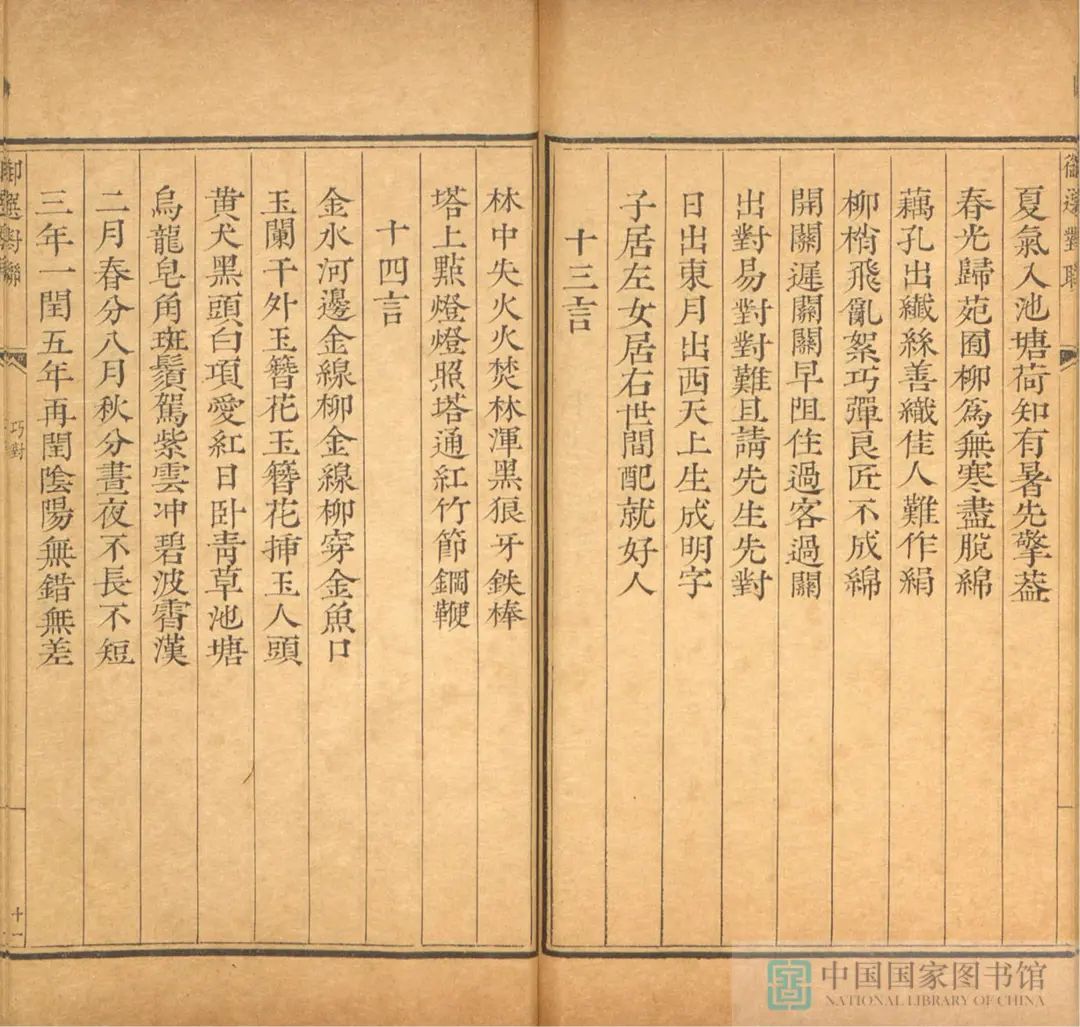 御選對聯
夏氣入池塘荷知有暑先擎葢
春光歸苑囿柳為無寒盡脫綿
藕孔出纖絲善織佳人難作絹
柳梢飛亂絮巧彈良匠不成綿
開關遲關關早阻住過客過關
出對易對對難且請先生先對
日出東月出西天上生成明字
子居左女居右世間配就好人
十三言
林中失火火焚林渾黑狼牙鉄棒
塔上點燈燈照塔通紅竹節鋼鞭
十四言
金水河邊金線柳金線柳穿金魚口
玉闌干外玉簪花玉簪花挿玉人頭
黃犬黑頭白項愛紅日卧靑草池塘
烏龍皂角斑鬚駕紫雲冲碧波霄漢
二月春分八月秋分晝夜不長不短
三年一閏五年再閏陰陽無錯無差
御選對聯
巧對
十一
中国国家图书馆
NATIONAL LIBRARY OF CHINA